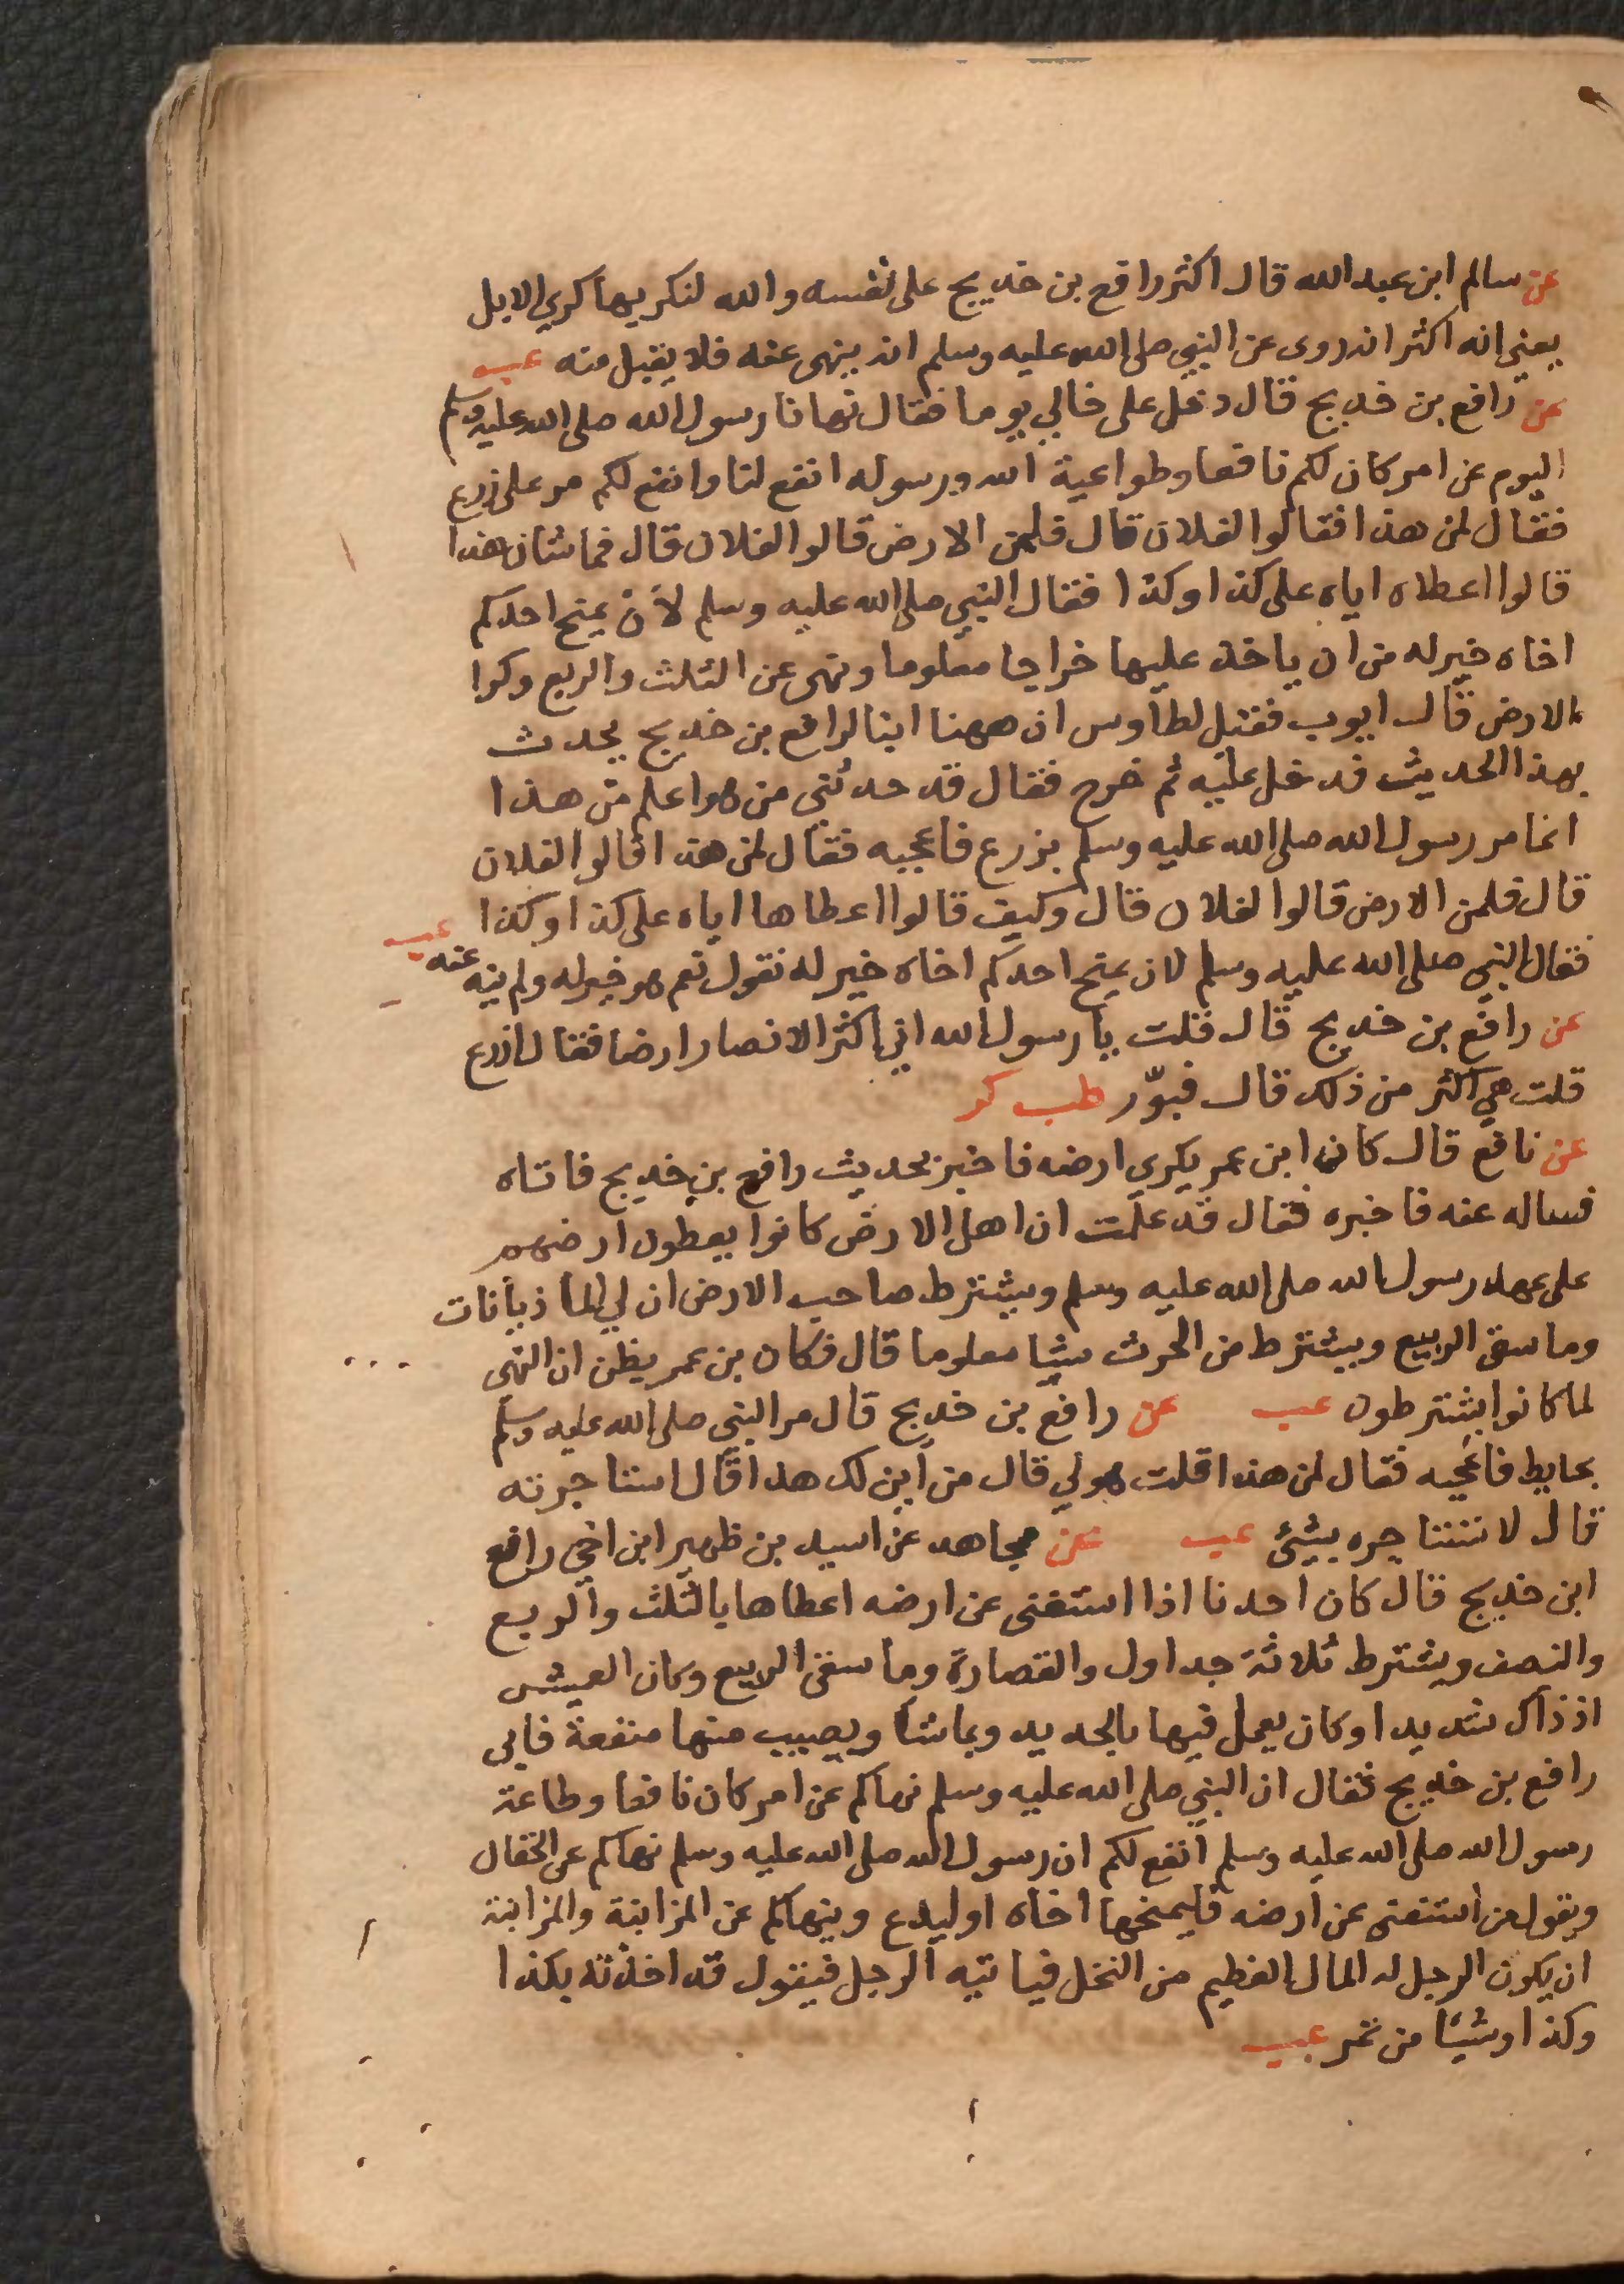 عن سالم ابن عبد الله قال اكثر رافع بن خديج على نفسه والله لنكريها كري الابل
يعني انه اكثر انه روى عن النبي صلى الله عليه وسلم انه ينهى عنه فلا يقبل منه عب
عن رافع بن خديج قال دخل على خالي يوما فقال نهانا رسول الله صلى الله عليه وسلم
اليوم عن امر كان لكم نافعا وطواعية الله ورسوله انفع لنا وانفع لكم مر على زرع
فقال لمن هذا فقالوا لفلان قال فلمن الارض قالوا لفلان قال فما شان هذا
قالوا اعطاه اياه على كذا وكذا فقال النبي صلى الله عليه وسلم لأن يمنح احدكم
اخاه خير له من ان ياخذ عليها خراجا معلوما ونهى عن الثلث والربع وكرا
الارض قال ايوب فقيل لطاوس ان ههنا ابنا لرافع بن خديج يحدث
بهذا الحديث فدخل عليه ثم خرج فقال قد حدثني من هو اعلم من هذا
انما مر رسول الله صلى الله عليه وسلم بزرع فاعجبه فقال لمن هذا قالوا لفلان
قال فلمن الارض قالوا لفلان قال وكيف قالوا اعطاها اياه على كذا وكذا
فقال النبي صلى الله عليه وسلم لان يمنح احدكم اخاه خير له نقول نعم هو خير له ولم ينه عنه عب
عن رافع بن خديج قال قلت يا رسول الله اني اكثر الانصار ارضا فقال ازرع
قلت هي اكثر من ذلك قال فبوّر طب كر
عن نافع قال كان ابن عمر يكري ارضه فاخبر بحديث رافع بن خديج فاتاه
فساله عنه فاخبره فقال قد علمت ان اهل الارض كانوا يعطون ارضهم
على عهد رسول الله صلى الله عليه وسلم ويشترط صاحب الارض ان لي الماذيانات
وما سقى الربيع ويشترط من الحرث شيا معلوما قال فكان بن عمر يظن ان النهى
لما كانوا يشترطون عب عن رافع بن خديج قال مر النبي صلى الله عليه وسلم
بحايط فاعجبه فقال لمن هذا قلت هو لي قال من أين لك هذا قال استاجرته
قال لا تستاجره بشئ عب عن مجاهد عن اسيد بن ظهير ابن اخي رافع
ابن خديج قال كان احدنا اذا استغنى عن ارضه اعطاها بالثلث والربع
والنصف ويشترط ثلاثة جداول والقصارة وما سقى الربيع وكان العيش
اذ ذاك شديدا وكان يعمل فيها بالحديد وبماشا ويصيب منها منفعة فاتى
رافع بن خديج فقال ان النبي صلى الله عليه وسلم نهاكم عن امر كان نافعا وطاعة
رسول الله صلى الله عليه وسلم انفع لكم ان رسول الله صلى الله عليه وسلم نهاكم عن الحقال
ويقول من استغنى عن ارضه فليمنحها اخاه او ليدع وينهاكم عن المزابنة والمزابنة
ان يكون الرجل له المال العظيم من النخل فياتيه الرجل فيقول قد اخذته بكذا
وكذا وشيئا من تمر عب